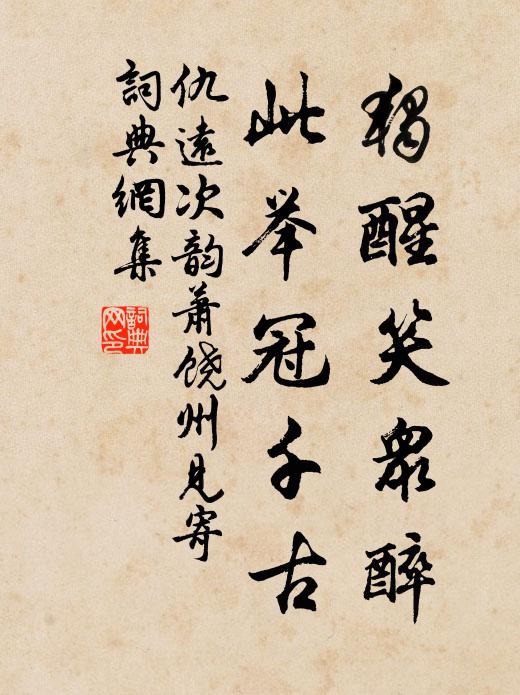 獨醒笑衆醉
此举冠千古
仇遠次韵蕭饒州見寄
詞典網集
詞典网印